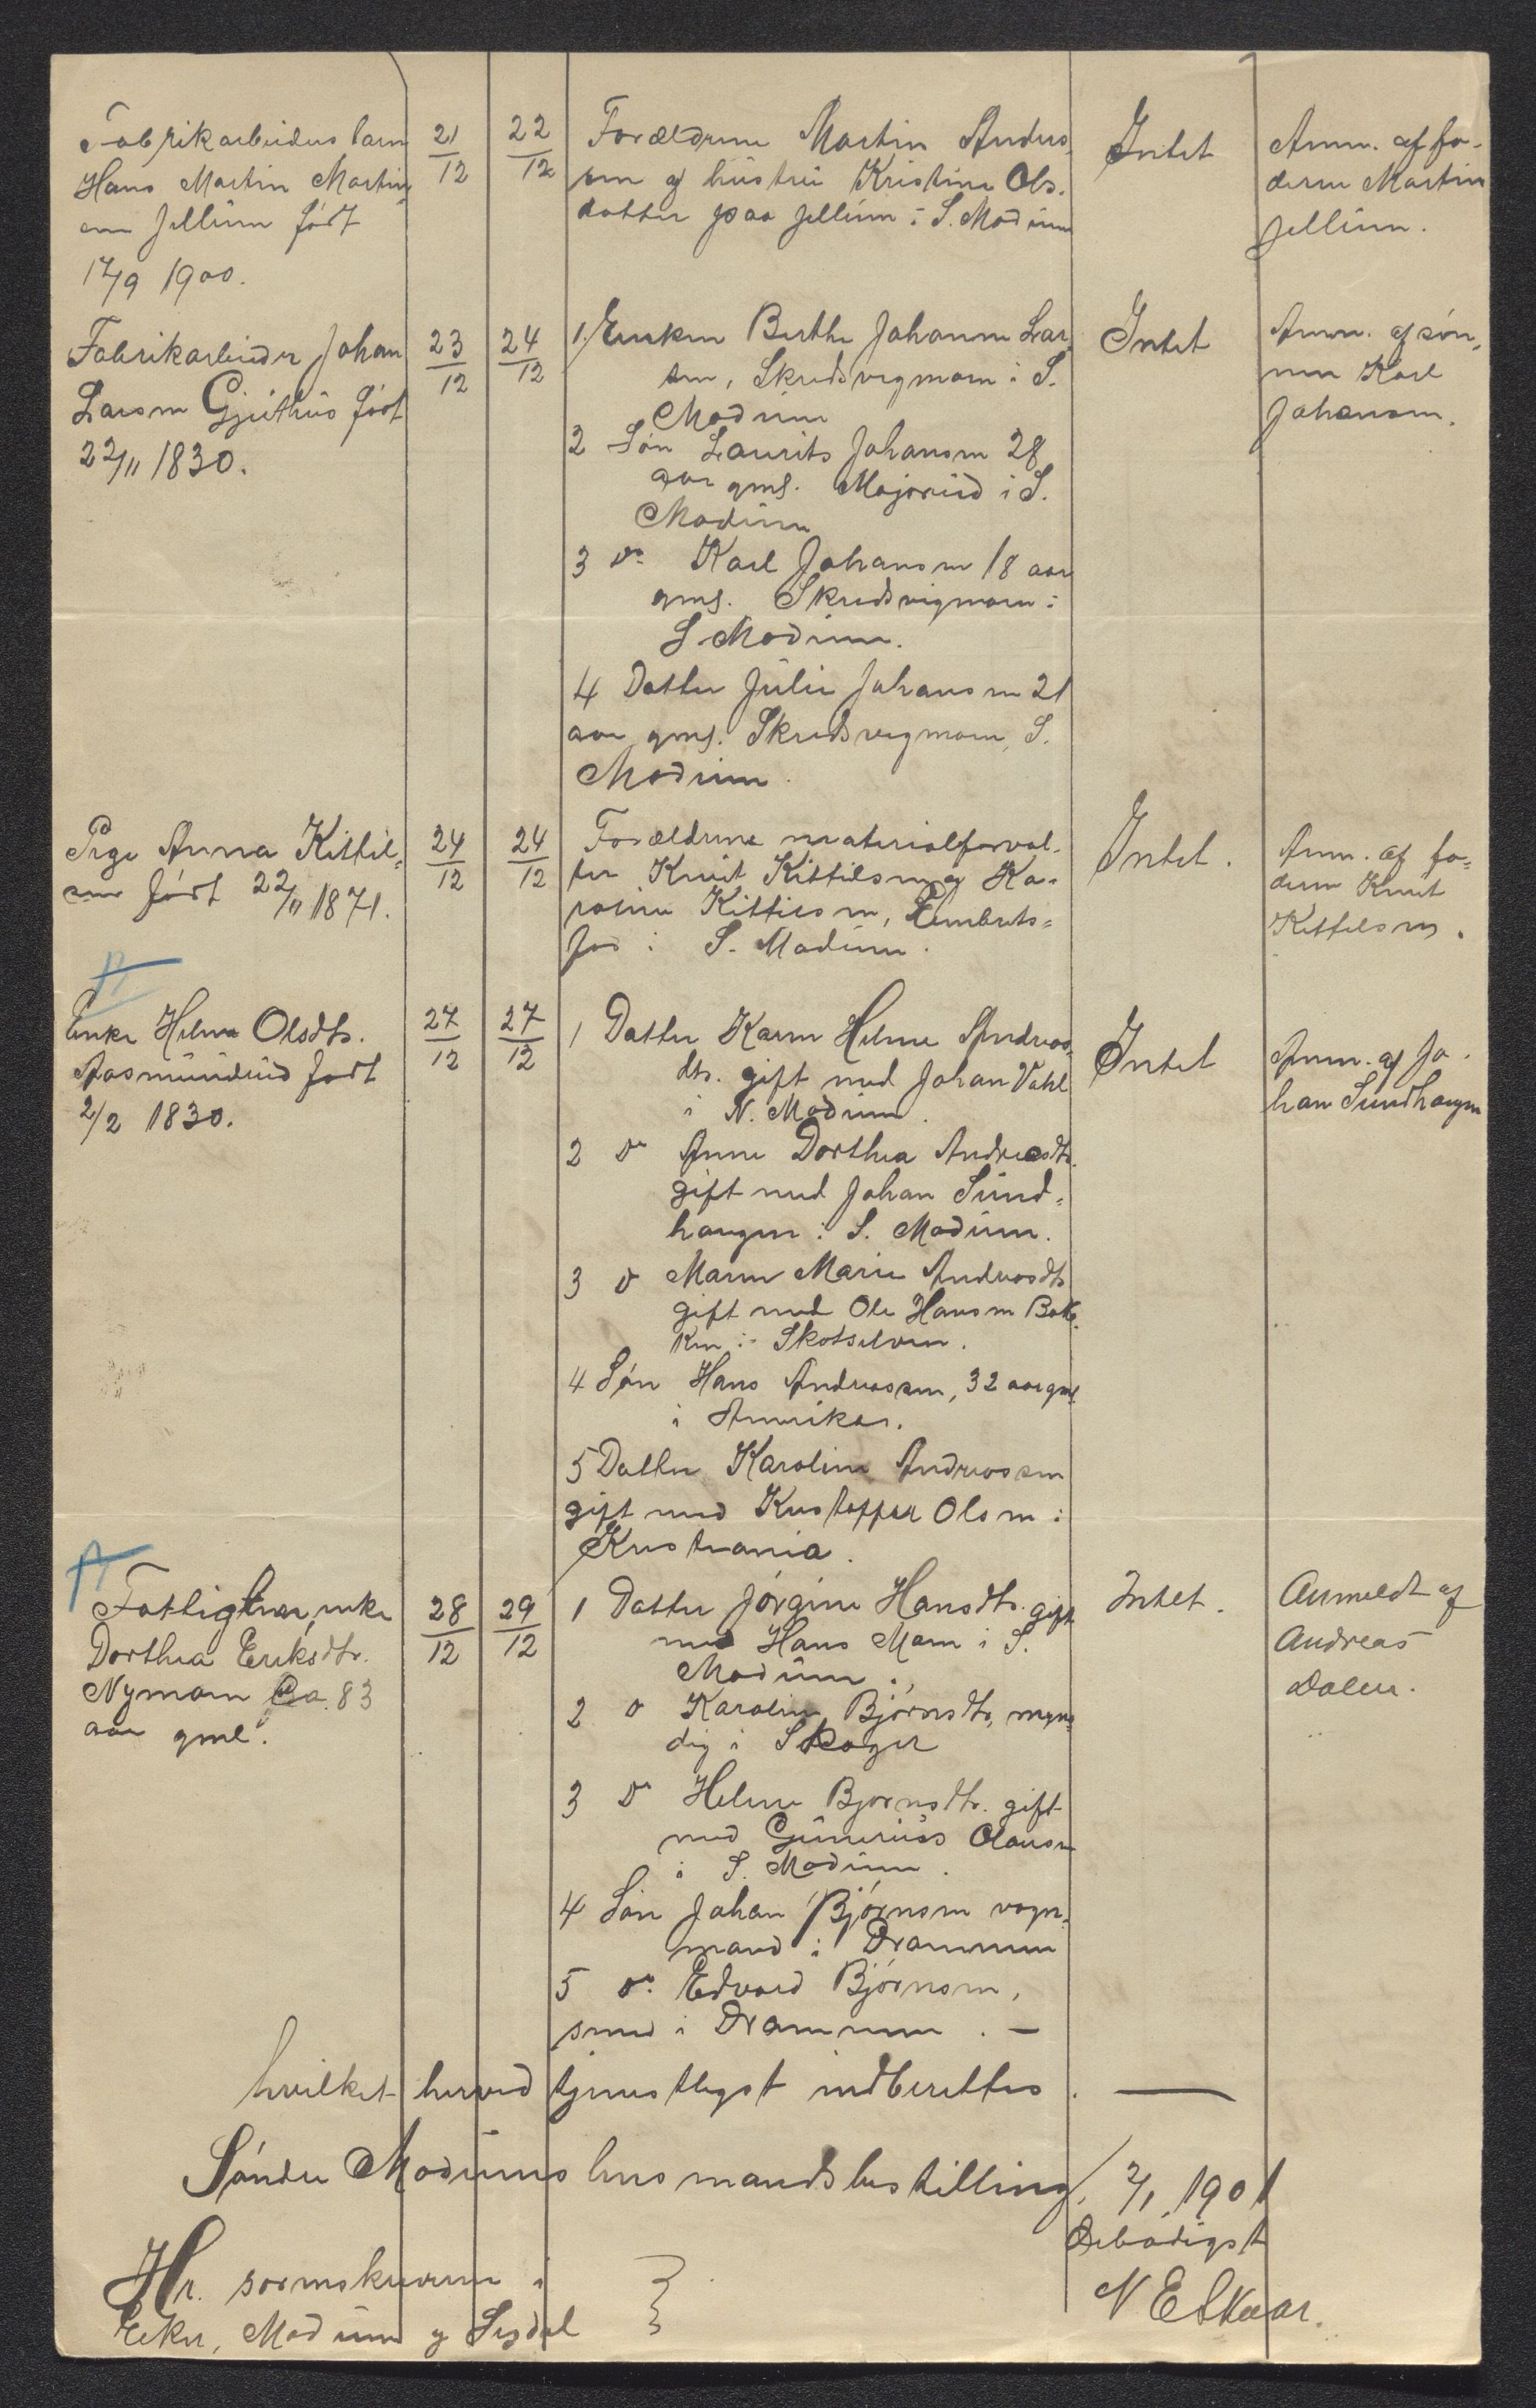 Fabrikarbeiders barn
Hans Martin Martin-
sen Jellum født
17/9 1900.
21/12
22/12
Forældrene Martin Anders-
sen og hustru Kristine Ols-
datter paa Jellum i S. Modum
Intet
Anm. af fa-
deren Martin
Jellum.
Fabrikarbeider Johan
Larsen Gjethus født
22/11 1830.
23/12
24/12
1. Enken Berthe Johanne Lar-
sen, Skredsvigmoen i S.
Modum
2 Søn Laurits Johansen 28
aar gml. Majorud i S.
Modum
3 do Karl Johansen 18 aar
gml. Skredsvigmoen i
S. Modum.
4 Datter Julie Johansen 21
aar gml. Skredsvigmoen, S.
Modum.
Intet
Anm. af søn-
nen Karl
Johansen.
Pige Anna Kittil-
sen født 22/11 1871.
24/12
24/12
Forældrene materialforval-
ter Knut Kittilsen og Ka-
roline Kittilsen, Embrets-
fos i S. Modum.
Intet.
Anm. af fa-
deren Knut
Kittilsen.
Enke Helene Olsdtr.
Aasmundrud født
2/2 1830.
27/12
27/12
1 Datter Karen Helene Andreas-
dtr. gift med Johan Vahl
i N. Modum.
2 do Anne Dorthea Andreasdtr.
gift med Johan Sund-
haugen i S. Modum.
3 do Maren Marie Andreasdtr.
gift med Ole Hansen Bak-
ken i Skotselven.
4 Søn Hans Andreassen, 32 aar gml.
i Amerika.
5 Datter Karoline Andreassen
gift med Kristoffer Olsen i
Kristiania.
Intet
Anm. af Jo-
han Sundhaugen
Fattiglem, enke
Dorthea Eriksdtr.
Nymoen Ca. 83
aar gml.
28/12
29/12
1 Datter Jørgine Hansdtr. gift
med Hans Moen i S.
Modum.
2 do Karoline Bjørnsdtr, myn-
dig i Skoger
3 do Helene Bjørnsdtr. gift
med Gunerius Olausen
i S. Modum.
4 Søn Johan Bjørnsen vogn-
mand i Drammen
5 do. Edvard Bjørnsen,
smed i Drammen. —
Intet.
Anmeldt af
Andreas
Dalen.
hvilket herved tjenstligst indberettes. —
Søndre Modums lensmandsbestilling, 2/1 1901
Ærbødigst
N E Skaar.
Hr. sorenskriveren i
Eker, Modum og Sigdal